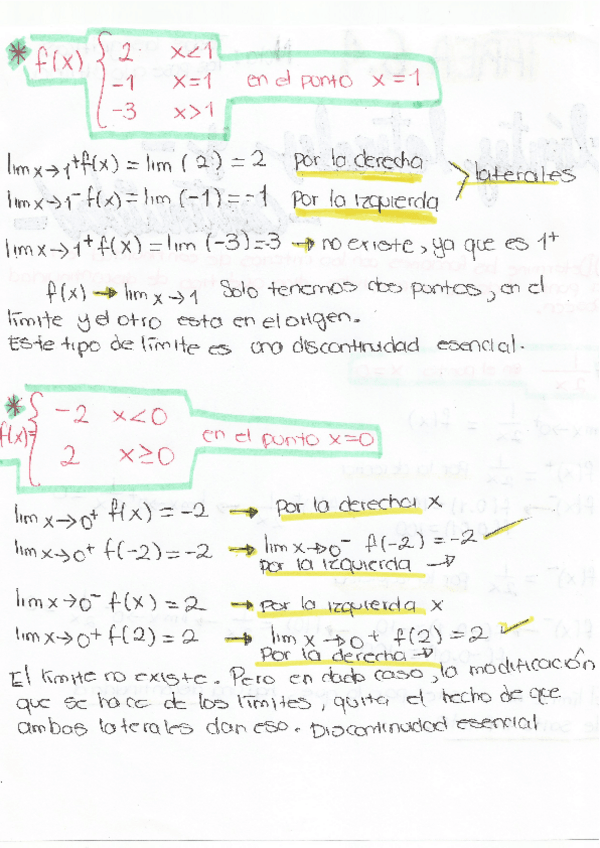 * f(x) { 2 x<1
-1 x=1 en el punto x=1
-3 x>1
lim x→1⁺ f(x) = lim (2) = 2 por la derecha
lim x→1⁻ f(x) = lim (-1) = -1 Por la izquierda > laterales
lim x→1⁺ f(x) = lim (-3) = -3 → no existe, ya que es 1⁺
f(x) → lim x→1 Solo tenemos dos puntos, en el
límite y el otro esta en el origen.
Este tipo de límite es una discontinuidad esencial.
* f(x)= { -2 x<0
2 x≥0 en el punto x=0
lim x→0⁺ f(x) = -2 → Por la derecha x
lim x→0⁺ f(-2) = -2 → lim x→0⁻ f(-2) = -2 ✓
por la izquierda →
lim x→0⁻ f(x) = 2 → por la izquierda x
lim x→0⁺ f(2) = 2 → lim x→0⁺ f(2) = 2 ✓
Por la derecha →
El límite no existe. Pero en dado caso, la modificación
que se hace de los límites, quita el hecho de que
ambas laterales dan eso. Discontinuidad esencial